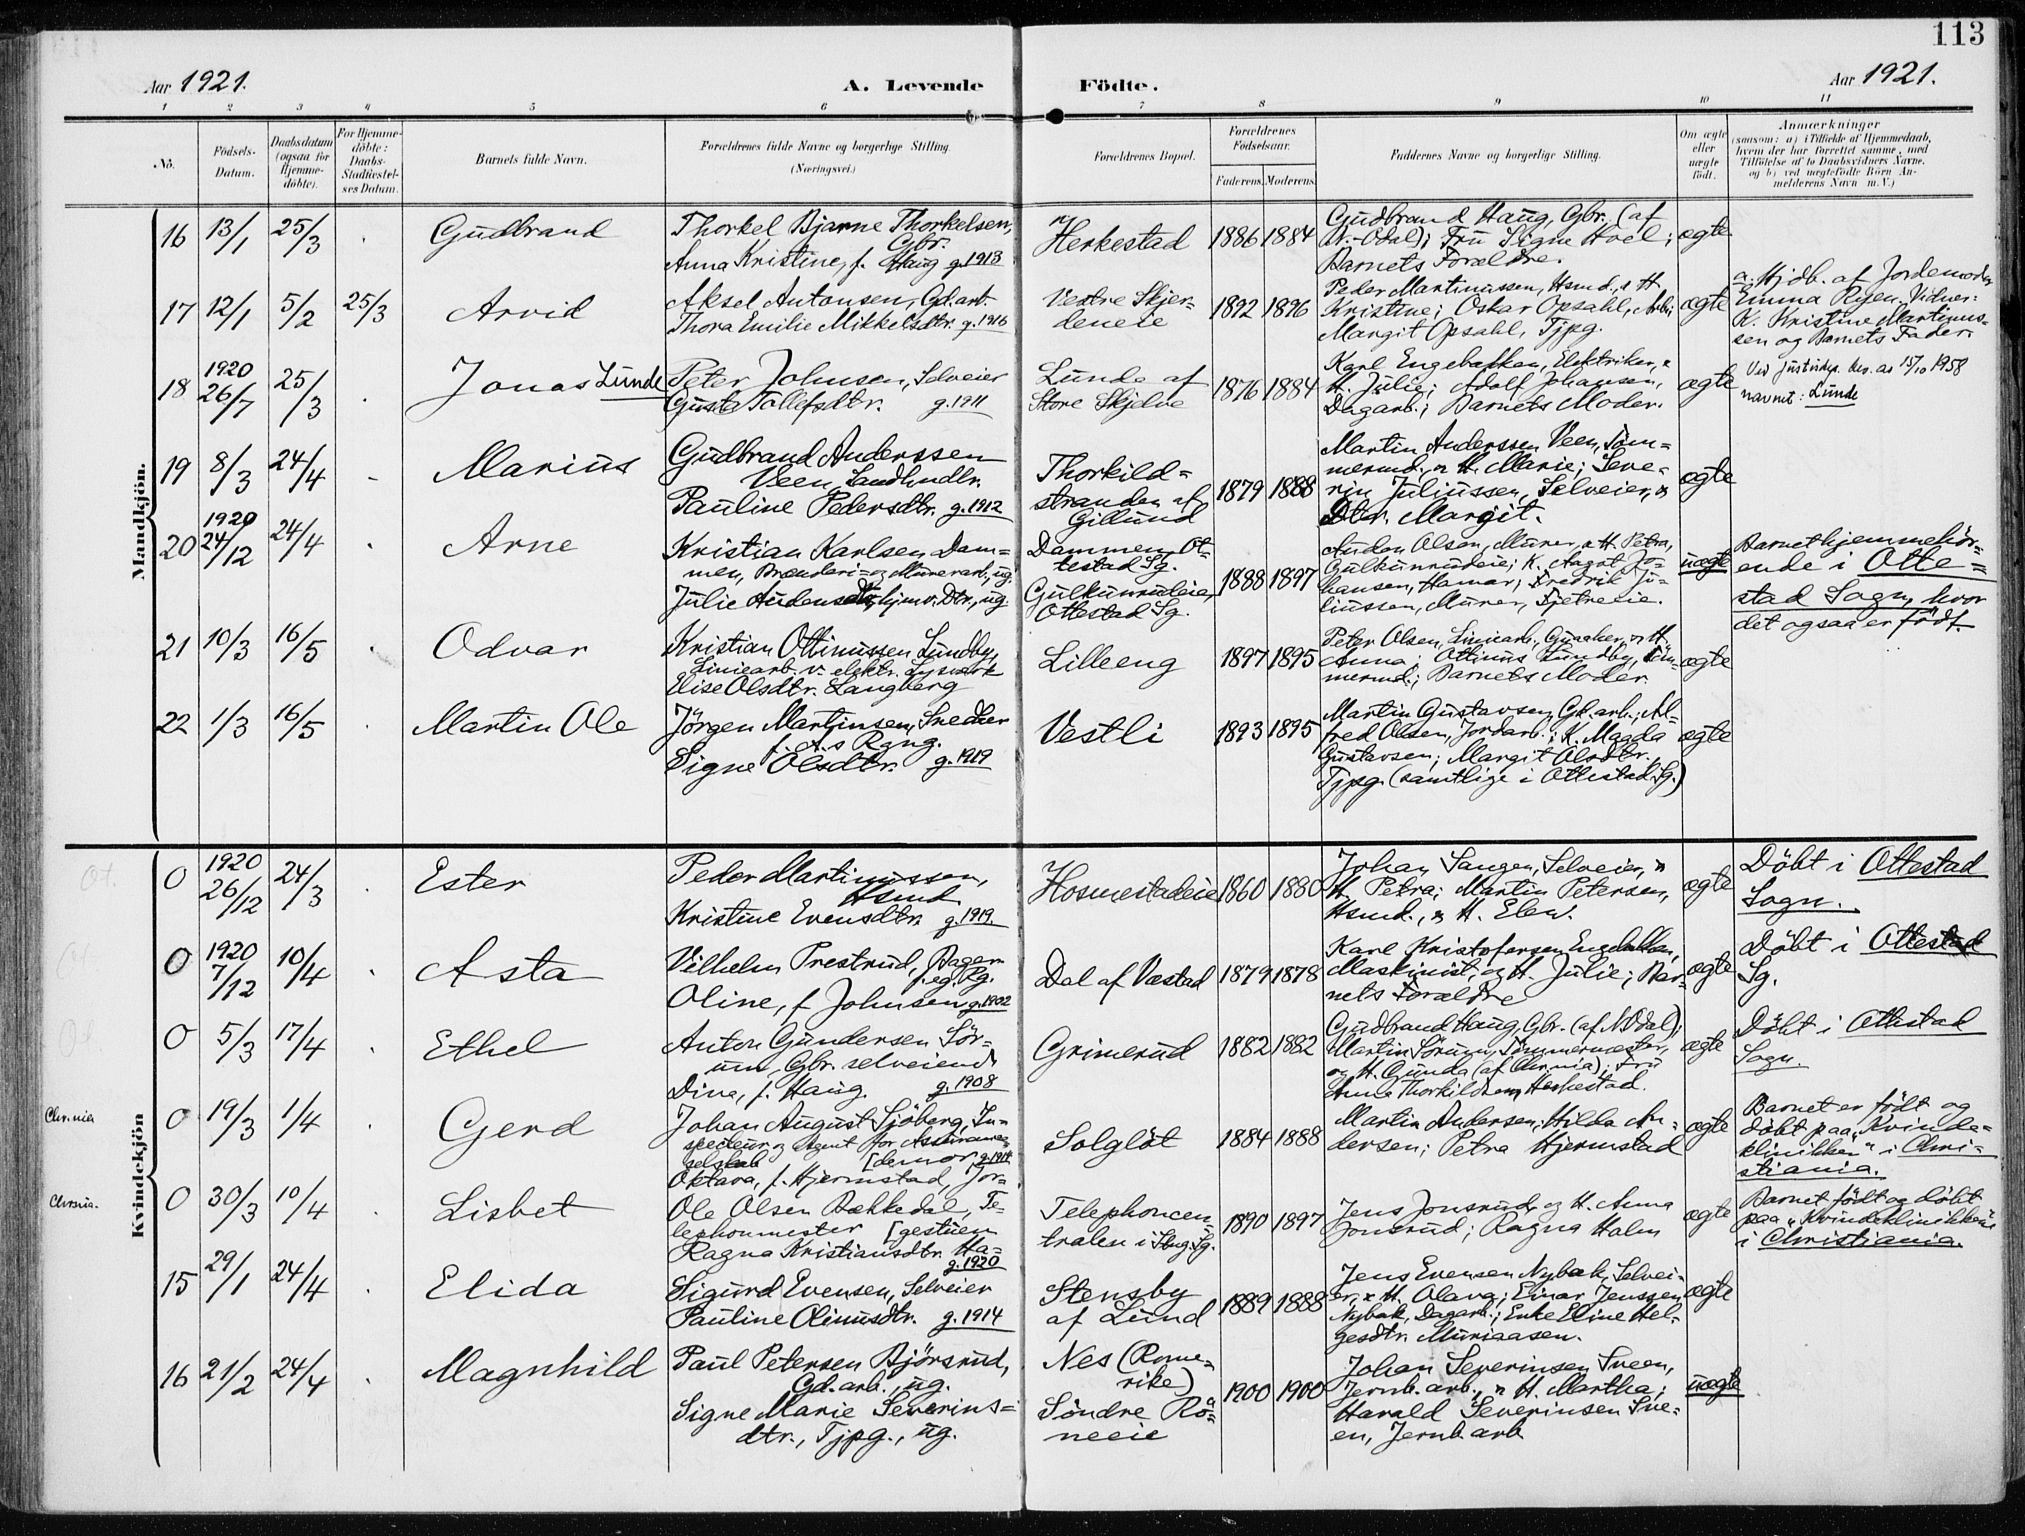 113
Aar 1921.
A. Levende Födte.
Aar 1921.
1 2 3 4 5 6 7 8 9 10 11
Nô.
Födsels-Datum.
Daabsdatum (ogsaa for Hjemme-döbte).
For Hjemme-döbte: Daabs-Stadfæstel-ses Datum.
Barnets fulde Navn.
Forældrenes fulde Navne og borgerlige Stilling (Næringsvei.)
Forældrenes Bopæl.
Forældrenes Födselsaar.
Faderens. Moderens.
Faddernes Navne og borgerlige Stilling.
Om ægte eller uægte födt.
Anmærkninger
(saasom: a) i Tilfælde af Hjemmedaab, hvem der har forrettet samme, med Tilföielse af to Daabsvidners Navne, og b) ved uægtefödte Börn Anmelderens Navn m. V.)
Mandkjön.
16 13/1 25/3 Gudbrand
Thorkel Bjarne Thorkelsen,
Gbr.
Anna Kristine, f. Haug g. 1913
Herkestad
1886 1884
Gudbrand Haug, Gbr. (af
N.-Odal); Fru Signe Hoel;
Barnets Forældre.
ægte
17 12/1 5/2 25/3 Arvid
Aksel Antonsen, Gd.arb.
Thora Emilie Mikkelsdtr. g. 1916
Vestre Skjer-
deneie
1892 1896
Peder Martinussen, Hsmd., & H.
Kristine; Oskar Opsahl, Arb.;
Margit Opsahl, Tjpg.
ægte
a. Hjdb. af Jordemoder
Emma Ryen. Vidner:
K. Kristine Martinus-
sen og Barnets Fader.
18 1920 26/7 25/3 Jonas Lunde
Peter Johnsen, Selveier
Guste Tollefsdtr. g. 1911
Lunde af
Store Skjelve
1876 1884
Karl Engebakken, Elektriker, &
H. Julie; Adolf Johansen,
Dagarb.; Barnets Moder.
ægte
Ved Justisdep. bev. av 15/10 1958
navnet: Lunde
19 8/3 24/4 Marius
Gudbrand Anderssen
Veen, Landhndlr.
Pauline Pedersdtr. g. 1912
Thorkild-
stranden af
Gillund
1879 1888
Martin Anderssen Veen, Töm-
mermd. & H. Marie; Seve-
rin Juliussen, Selveier, &
Dtr. Margit.
ægte
20 1920 24/12 24/4 Arne
Kristian Karlsen Dam-
men, Brænderi- og Murerarb., ug.
Julie Audensdtr, hjmv. Dtr., ug
Dammen, Ot-
testad Sg.
Gulkunruleie,
Ottestad Sg.
1888 1897
Auden Olsen, Murer, & H. Petra,
Gulkunruleie; K. Aagot Jo-
hansen, Hamar; Fredrik Ju-
liussen, Murer, Fjetreeie.
uægte
Barnet hjemmehör-
ende i Otte-
stad Sogn, hvor
det ogsaa er födt.
21 10/3 16/5 Odvar
Kristian Ottinussen Lundby,
Liniearb. v. elektr. Lysværk
Elise Olsdtr. Langberg
Lilleeng
1897 1895
Peter Olsen, Liniearb., & H.
Anna; Ottinus Lundby, Töm-
mermd.; Barnets Moder.
ægte
22 1/3 16/5 Martin Ole
Jörgen Martinsen, Snedker
Signe Olsdtr. g. 1919
Vestli
1893 1895
Martin Gustavsen, Gd.arb.; Al-
fred Olsen, Jordarb.; K. Magda
Gustavsen; Margit Olsdtr.
Tjpg. (samtlige i Ottestad Sg.)
ægte
Kvindekjön
Ot. 0 1920 26/12 24/3 Ester
Peder Martinussen,
Hsmd.
Kristine Evensdtr. g. 1919.
Hosmestadeie
1860 1880
Johan Sangen, Selveier, &
H. Petra; Martin Petersen,
Hsmd., & H. Elen.
ægte
Döbt i Ottestad
Sogn.
Ot. 0 1920 7/12 10/4 Asta
Vilhelm Prestrud, Bager
f. eg. Rg.
Oline, f. Johnsen g. 1902
Dal af Væstad
1879 1878
Karl Kristofersen Engebakken,
Maskinist, og H. Julie; Bar-
nets Forældre
ægte
Döbt i Ottestad
Sg.
Ot. 0 5/3 17/4 Ethel
Anton Gundersen Sör-
um, Gbr. selveiend
Dina, f. Haug. g. 1908
Grimerud
1882 1882
Gudbrand Haug, Gbr. (af N Odal);
Martin Sörum, Tömmermester,
og H. Gunda (af Chr.nia); Fru
Anna Thorkildsen, Herkestad.
ægte
Döbt i Ottestad
Sogn.
Chr.nia 0 19/3 1/4 Gerd
Johan August Sjöberg, In-
specteur og Agent for Assurance-
selskab [demor g. 1914
Oktava, f. Hjermstad, Jor-
Solglöt
1884 1888
Martin Andersen; Hilda An-
dersen; Petra Hjermstad
ægte
Barnet er födt og
döbt paa „Kvinde-
klinikken" i Chri-
stiania.
Chr.nia. 0 30/3 10/4 Lisbet
Ole Olsen Bækkedal, Te-
lephonmester [gestuen
Ragna Kristiansdtr. Ha-
g. 1920
Telephoncen-
tralen i Stng. Sg.
1890 1897
Jens Jonsrud, og H. Anna
Jonsrud; Ragna Holm
ægte
Barnet födt og döbt
paa „Kvindeklinikken"
i Christiania.
15 29/1 24/4 Elida
Sigurd Evensen, Selveier
Pauline Olinusdtr. g. 1914
Stensby
af Lund
1889 1888
Jens Evensen Nybak, Selvei-
er, & H. Olava; Einar Jenssen
Nybak, Dagarb.; Enke Eline Hel-
gesdtr. Muriaasen.
ægte
16 21/2 24/4 Magnhild
Paul Petersen Björsrud,
Gd.arb., ug.
Signe Marie Severins-
dtr., Tjpg., ug.
Nes (Rome-
rike)
Söndre Rö-
neeie
1900 1900
Johan Severinsen Sveen,
Jernb.arb., & H. Martha;
Harald Severinsen Sve-
en, Jernb.arb
uægte